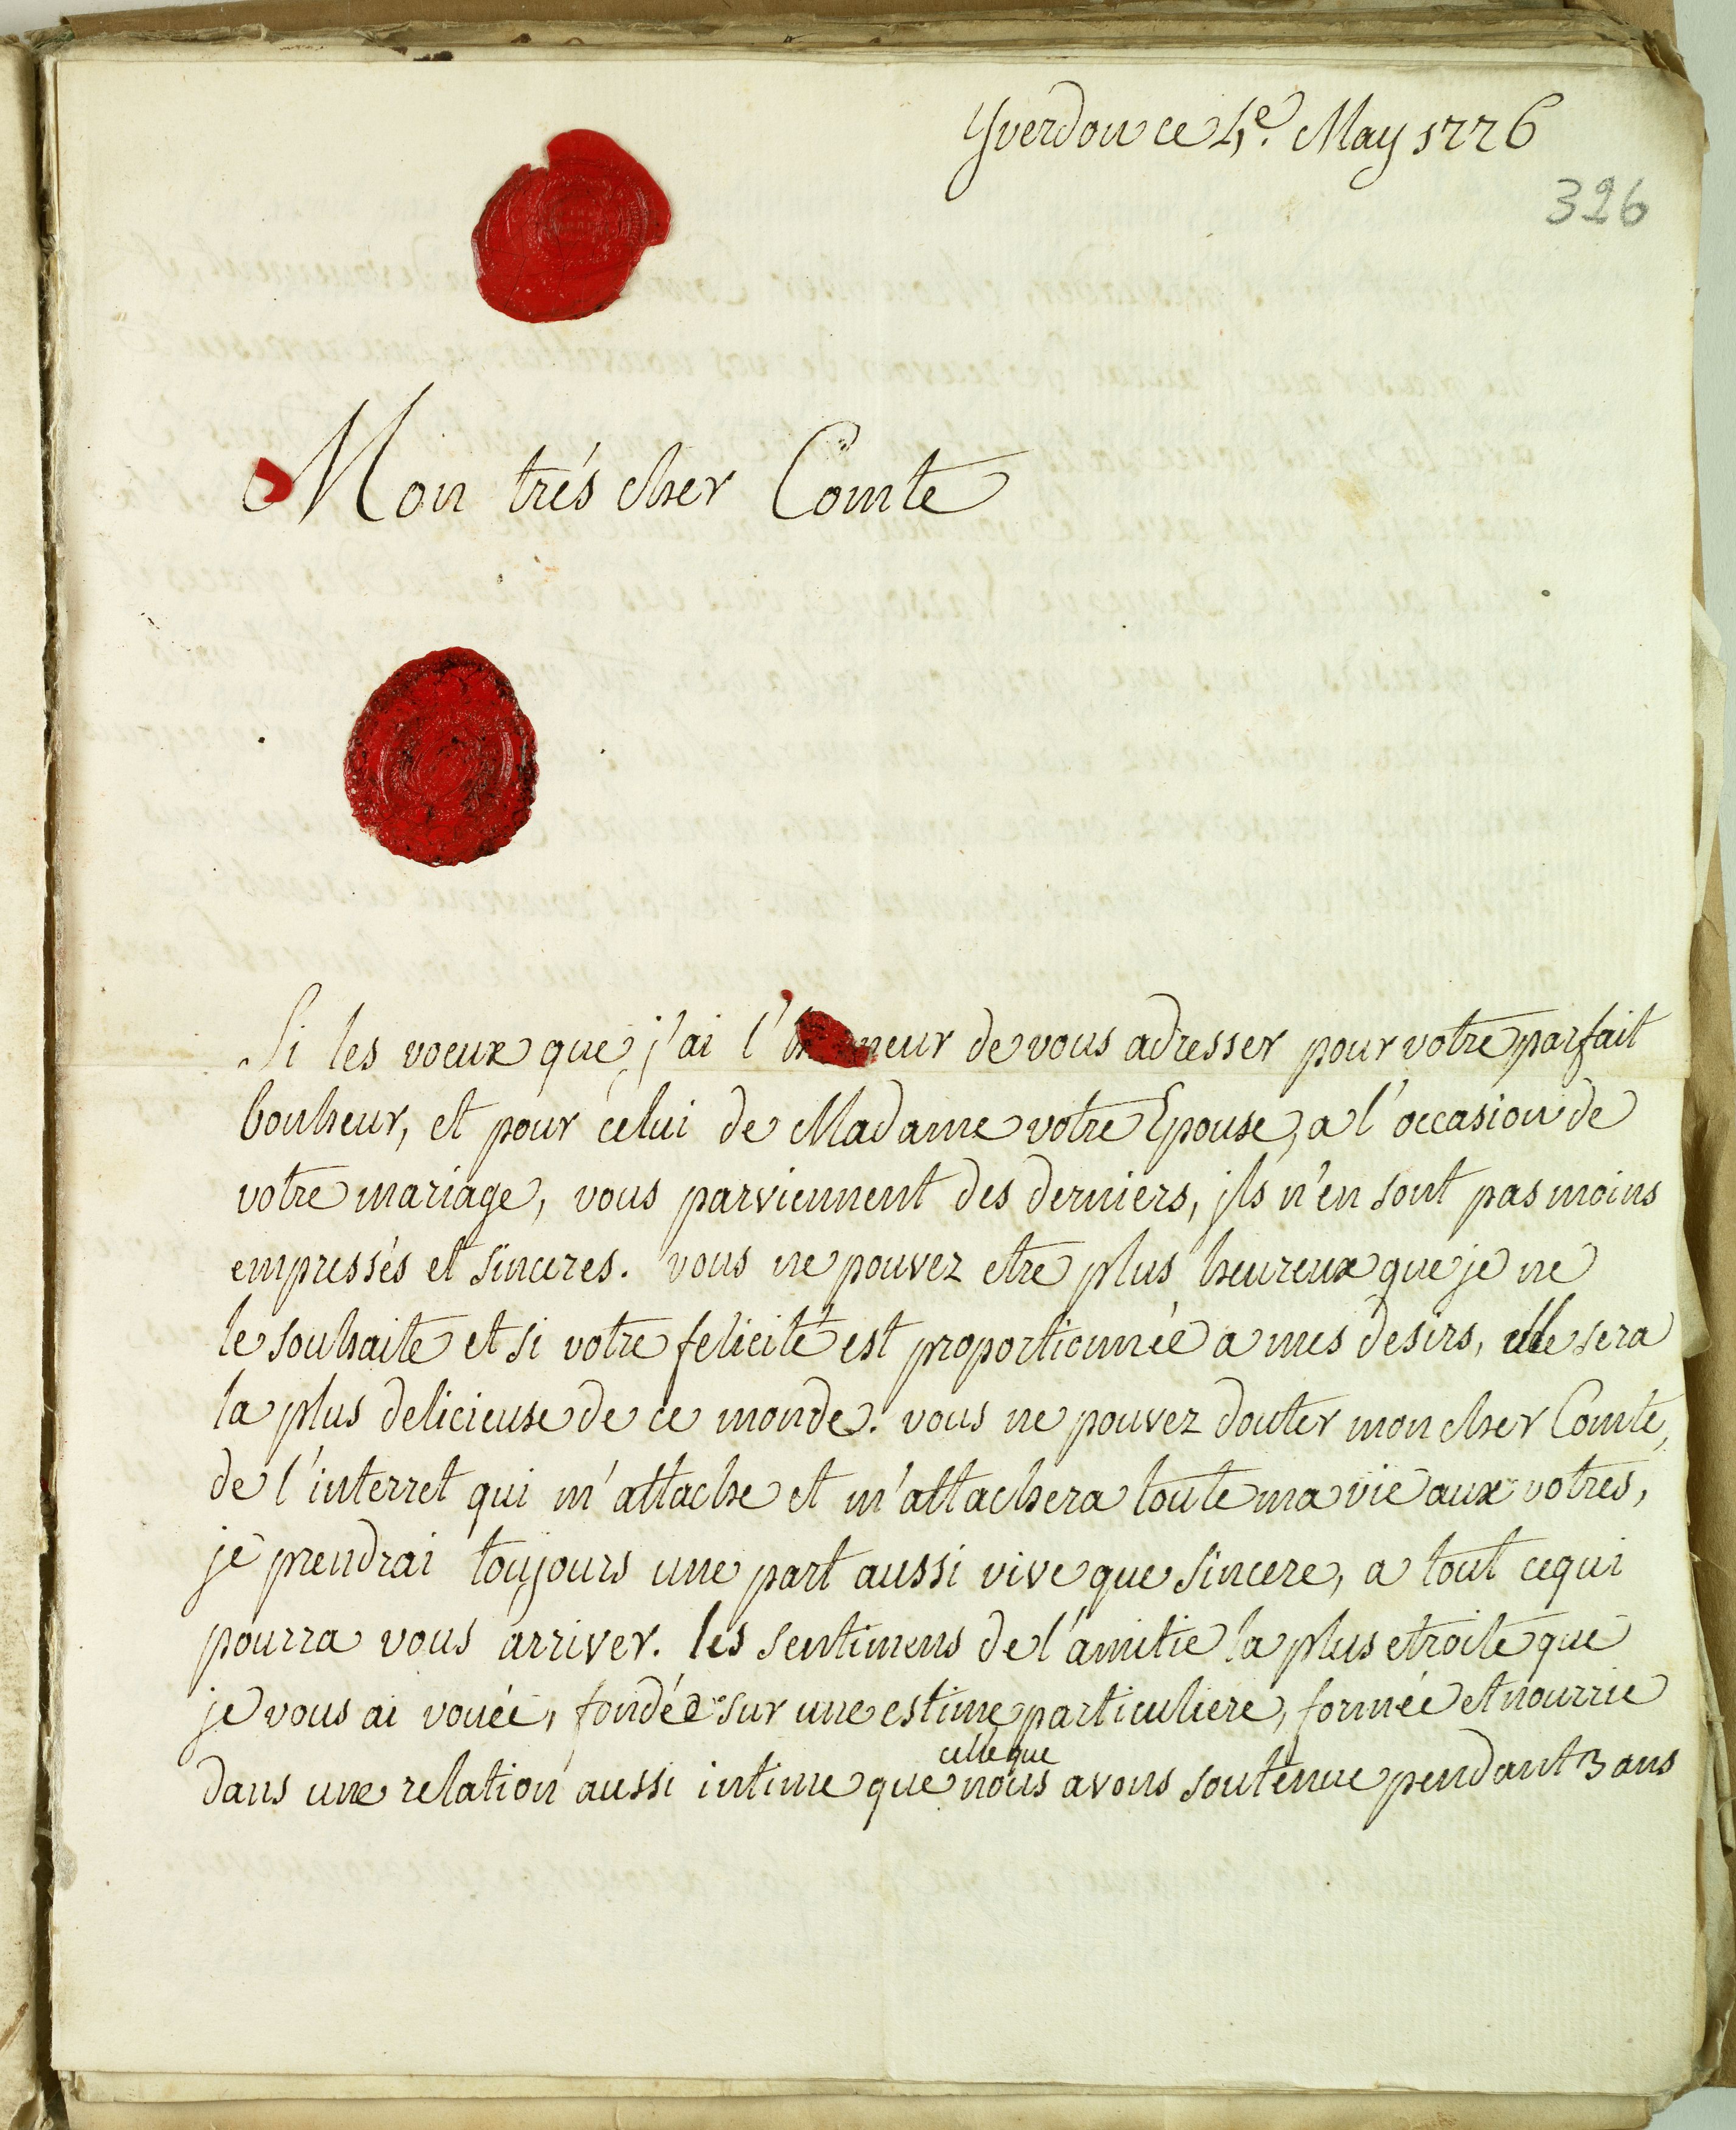 Yverdon ce 4e. May 1776
326
Mon trés cher Comte
Si les voeux que j'ai l'honneur de vous adresser pour votre parfait
bonheur, et pour celui de Madame votre Epouse, a l'occasion de
votre mariage, vous parviennent des derniers, ils n'en sont pas moins
empressés et sinceres. vous ne pouvez etre plus heureux que je ne
le souhaite et si votre felicité est proportionnée a mes desirs, elle sera
la plus delicieuse de ce monde. vous ne pouvez douter mon cher Comte,
de l'interret qui m'attache et m'attachera toute ma vie aux votres,
je prendrai toujours une part aussi vive que sincere, a tout ce qui
pourra vous arriver. les sentimens de l'amitie la plus etroite que
je vous ai vouée, fondée sur une estime particuliere, formée et nourrie
celle que
dans une relation aussi intime que nous avons soutenue pendant 3 ans